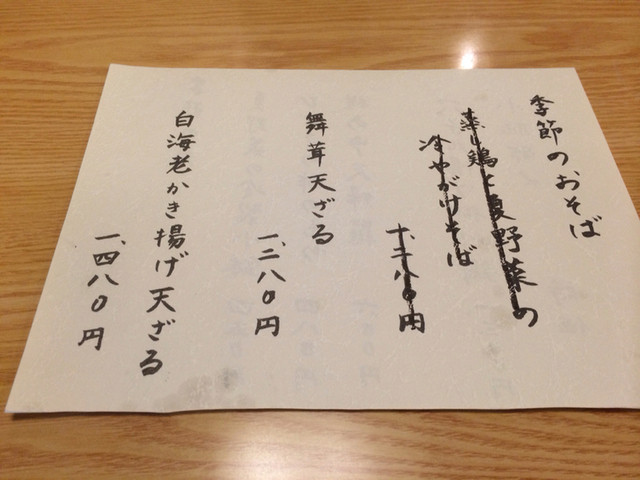 季節のおそば
蒸し鶏と夏野菜の
冷やがけそば
一、二八〇円
舞茸天ざる
一、二八〇円
白海老かき揚げ天ざる
一、四八〇円